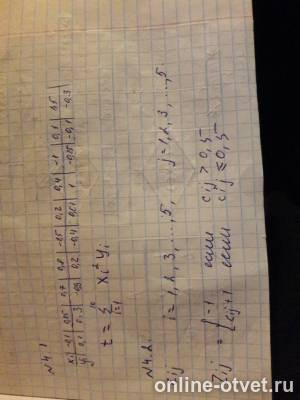 N4.1
xi | -0,1 | 0,05 | 0,7 | 0,8 | -1,5 | 0,2 | 0,4 | -1 | 0,1 | 1,5
yi | 0,1 | 0,3 | -0,9 | 0,2 | -0,4 | 0,61 | 1 | -0,15 | -0,1 | -0,3
t = Σ xi² yi
i=1
N4.2.
ij i=1,2,3,...,5, j=1,2,3,...,5,
ij = { -1 если cij > 0,5
cij+1 если cij ≤ 0,5
online-otvet.ru